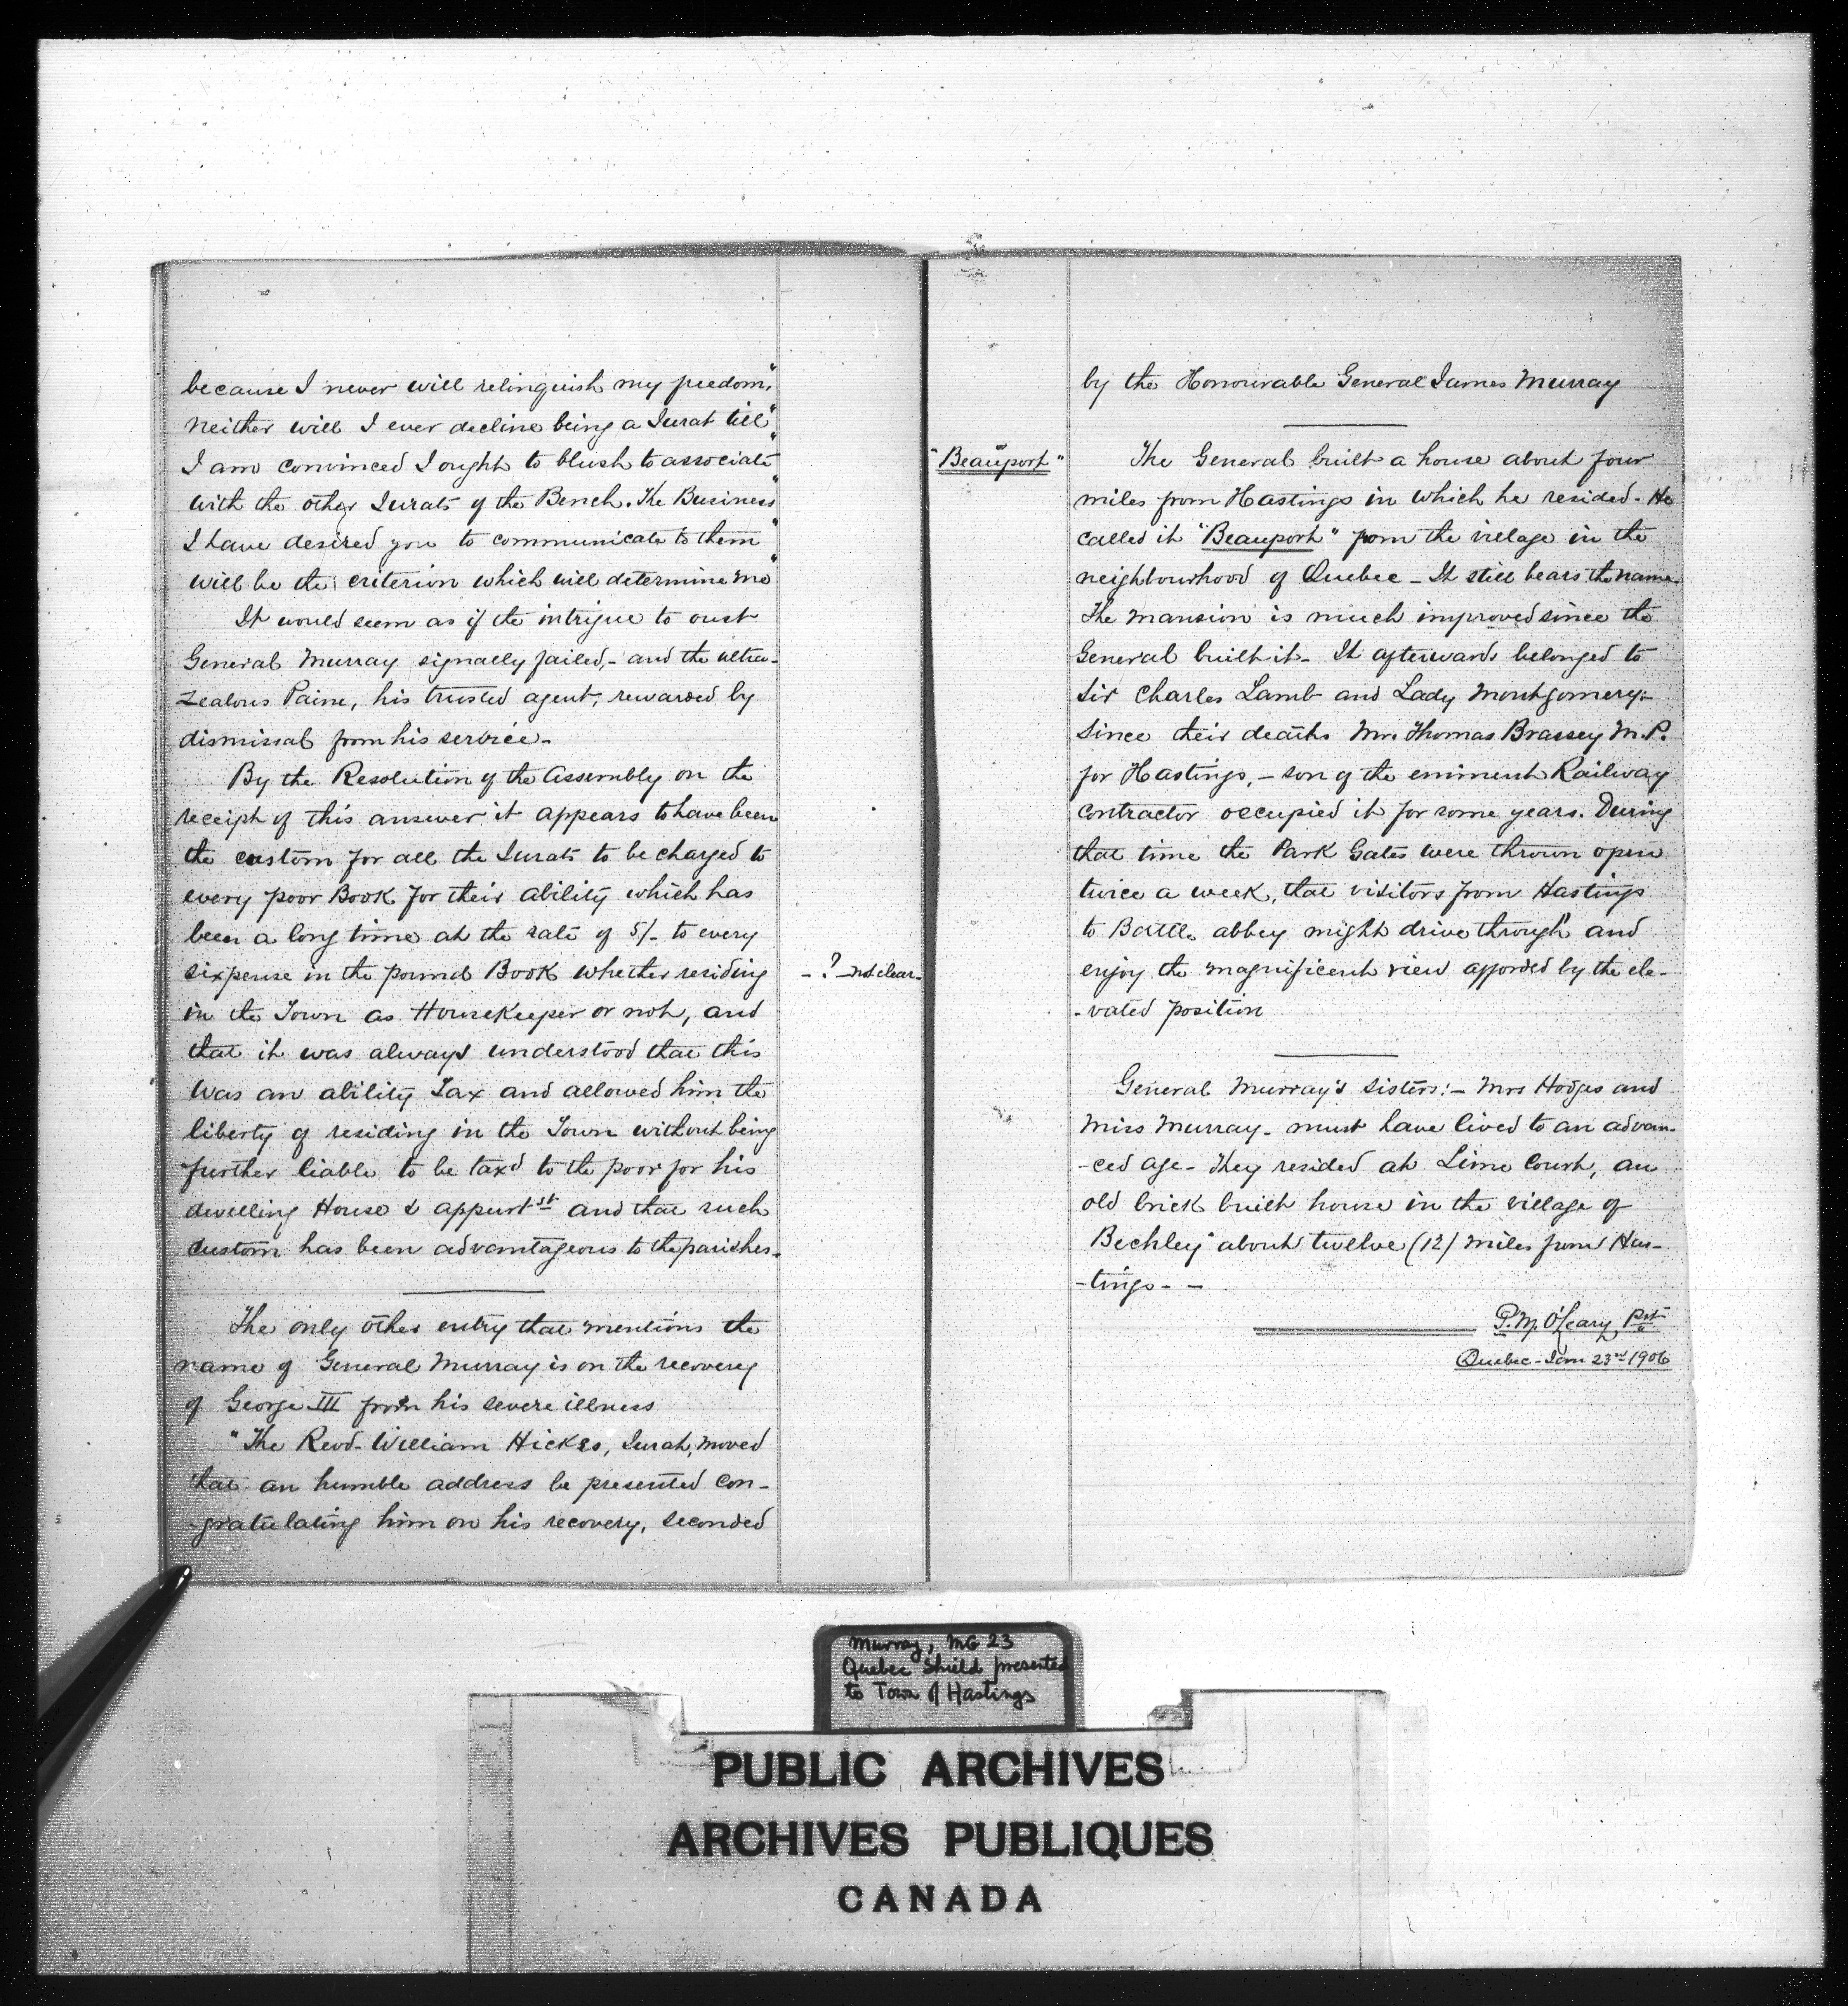 because I never will relinquish my freedom, "
neither will I ever decline being a Jurat till "
I am convinced I ought to blush to associate "
with the other Jurats of the Bench. The Business "
I have desired you to communicate to them "
will be the criterion which will determine me "
It would seem as if the intrigue to oust
General Murray signally failed, - and the ultra-
zealous Paine, his trusted agent, rewarded by
dismissal from his service.
By the Resolution of the Assembly on the
receipt of this answer it appears to have been
the custom for all the Jurats to be charged to
every poor Book for their ability which has
been a long time at the rate of 5/- to every
sixpense in the pound Book whether residing
- ? - not clear.
in the Town as Housekeeper or not, and
that it was always understood that this
was an ability Tax and allowed him the
liberty of residing in the Town without being
further liable to be taxd to the poor for his
dwelling House & appurt st and that such
custom has been advantageous to the parishes.
The only other entry that mentions the
name of General Murray is on the recovery
of George III from his severe illness
"The Revd. William Hickes, Jurat, moved
that an humble address be presented con-
-gratulating him on his recovery, seconded
by the Honourable General James Murray
"Beauport"
The General built a house about four
miles from Hastings in which he resided - He
called it "Beauport" from the village in the
neighbourhood of Quebec - It still bears the name.
The mansion is much improved since the
General built it - It afterwards belonged to
Sir Charles Lamb and Lady Montgomery:-
since their deaths Mr. Thomas Brassey M.P.
for Hastings, - son of the eminent Railway
contractor occupied it for some years. During
that time the Park Gates were thrown open
twice a week, that visitors from Hastings
to Battle abbey might drive through" and
enjoy the magnificent view afforded by the ele-
-vated position
General Murray's sisters:- Mrs Hodges and
Miss Murray - must have lived to an advan-
-ced age - They resided at Lime Court, an
old brick built house in the village of
Beckley" about twelve (12) miles from Has-
-tings - -
P.M. O'Leary, Pst
Quebec - Jan 23rd 1906
Murray, MG 23
Quebec Shield presented
to Town of Hastings
PUBLIC ARCHIVES
ARCHIVES PUBLIQUES
CANADA